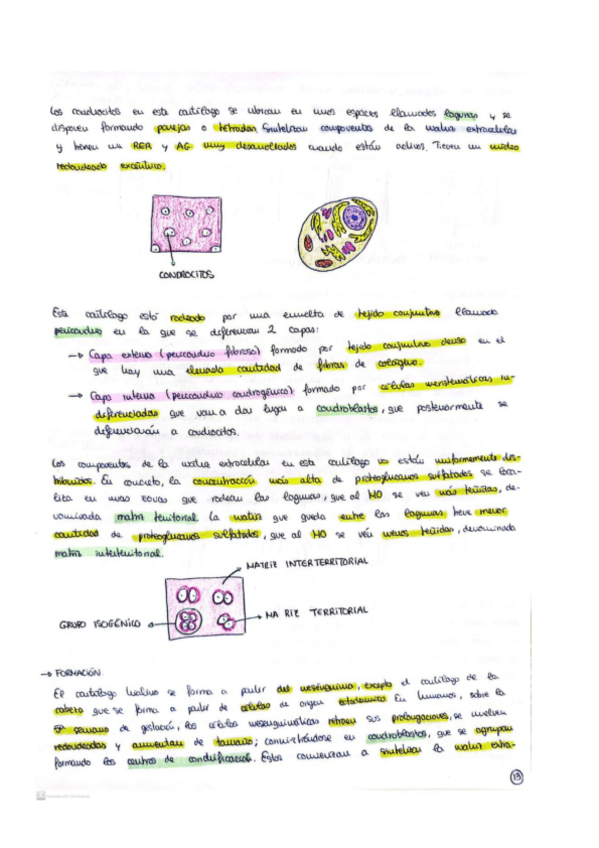 Los condrocitos en este cartílago se ubican en unos espacios llamados lagunas y se
disponen formando parejas o tetradas. Sintetizan componentes de la matriz extracelular
y tienen un RER y AG muy desarrollados cuando están activos. Tienen un núcleo
redondeado excéntrico.
CONDROCITOS
Este cartílago está rodeado por una envuelta de tejido conjuntivo llamada
pericondrio en la que se diferencian 2 capas:
→ Capa externa (pericondrio fibroso) formado por tejido conjuntivo denso en el
que hay una elevada cantidad de fibras de colágeno.
→ Capa interna (pericondrio condrogénico) formado por células meristemáticas in-
diferenciadas que van a dar lugar a condroblastos, que posteriormente se
diferenciarán a condrocitos.
Los componentes de la matriz extracelular en este cartílago no están uniformemente dis-
tribuidos. En concreto, la concentración más alta de proteoglucanos sulfatados se loca-
liza en unas zonas que rodean las lagunas, que al MO se ven más teñidas, de-
nominada matriz territorial. La matriz que queda entre las lagunas tiene menor
cantidad de proteoglucanos sulfatados, que al MO se ven menos teñidas, denominada
matriz interterritorial.
MATRIZ INTERTERRITORIAL
GRUPO ISOGÉNICO
MA RIZ TERRITORIAL
→ FORMACIÓN
El cartílago hialino se forma a partir del mesénquima, excepto el cartílago de la
cabeza que se forma a partir de células de origen ectodérmico. En humanos, sobre la
5ª semana de gestación, las células mesenquimáticas retraen sus prolongaciones, se vuelven
redondeadas y aumentan de tamaño; convirtiéndose en condroblastos, que se agrupan
formando los centros de condrificación. Estos comienzan a sintetizar la matriz extra-
13